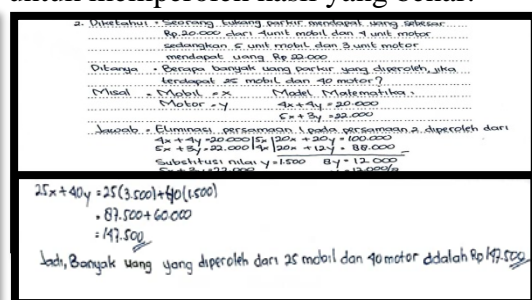 untuk memperoleh hasil yang benar.
2. Diketahui : Seorang tukang parkir mendapat uang sebesar
Rp.20.000 dari 4 unit mobil dan 4 unit motor
sedangkan 5 unit mobil dan 3 unit motor
mendapat uang Rp 22.000
Ditanya : Berapa banyak uang parkir yang diperoleh jika
terdapat 25 mobil dan 40 motor?
Misal : Mobil = x Model Matematika.
Motor = y 4x + 4y = 20.000
5x + 3y = 22.000
Jawab : Eliminasi persamaan 1 pada persamaan 2 diperoleh dari
4x + 4y = 20.000 |5x| 20x + 20y = 100.000
5x + 3y = 22.000 |4x| 20x + 12y = 88.000 −
Substitusi nilai y = 1.500 8y = 12.000
25x + 40y = 25(3.500) + 40(1.500)
= 87.500 + 60.000
= 147.500
Jadi, Banyak uang yang diperoleh dari 25 mobil dan 40 motor adalah Rp 147.500